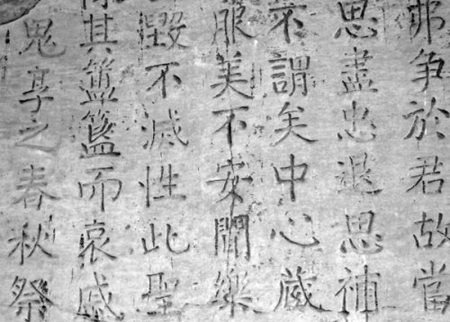 弗争於君故當
思盡忠退思補
不謂矣中心藏
服美不安聞樂
毀不滅性此聖
其簠簋而哀慼
鬼享之春秋祭